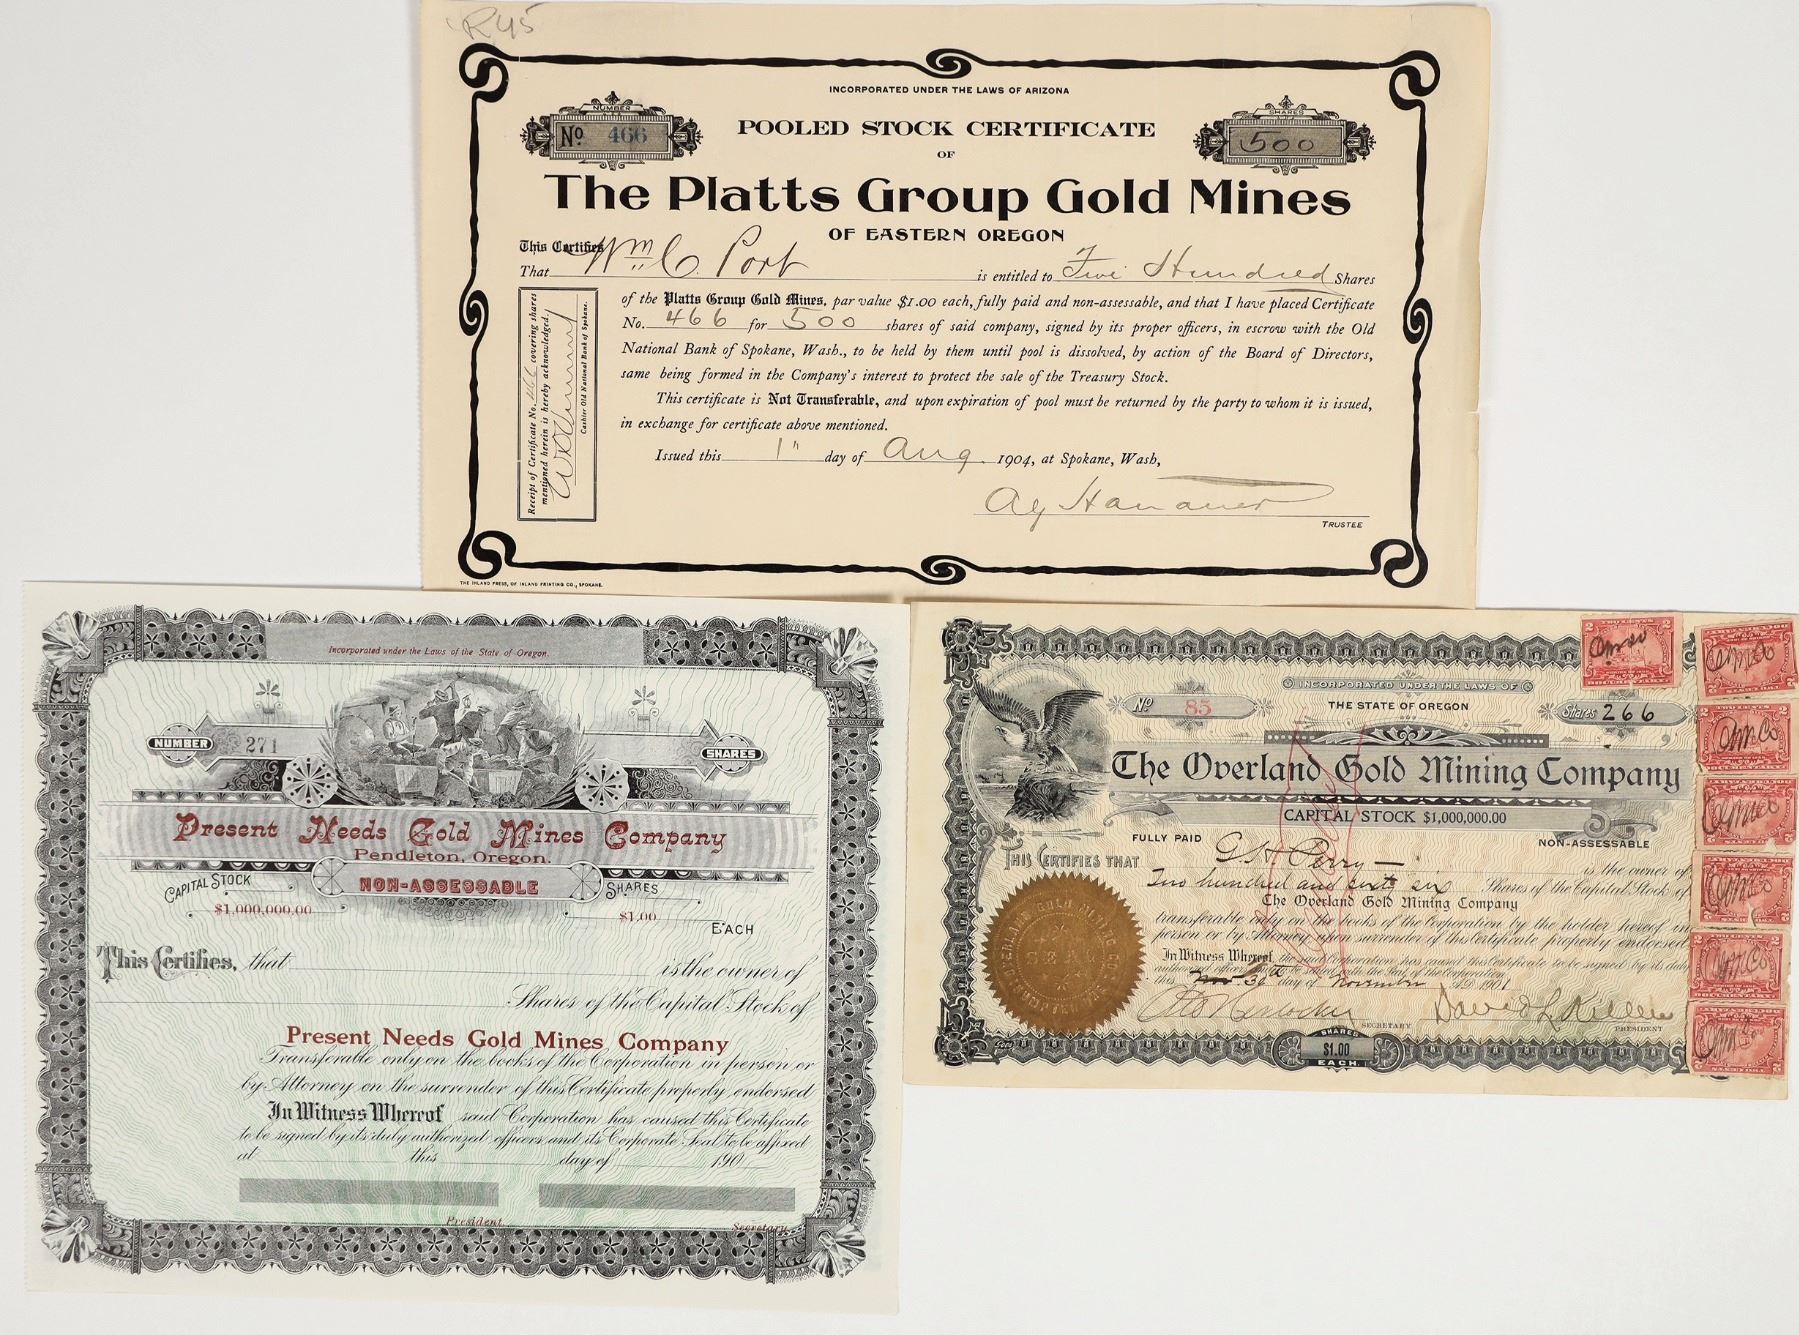 R45
INCORPORATED UNDER THE LAWS OF ARIZONA
NUMBER
No. 466
POOLED STOCK CERTIFICATE
SHARES
500
OF
The Platts Group Gold Mines
OF EASTERN OREGON
This Certifies
That Wm C. Port is entitled to Five Hundred Shares
of the Platts Group Gold Mines, par value $1.00 each, fully paid and non-assessable, and that I have placed Certificate
No. 466 for 500 shares of said company, signed by its proper officers, in escrow with the Old
National Bank of Spokane, Wash., to be held by them until pool is dissolved, by action of the Board of Directors,
same being formed in the Company's interest to protect the sale of the Treasury Stock.
This certificate is Not Transferable, and upon expiration of pool must be returned by the party to whom it is issued,
in exchange for certificate above mentioned.
Issued this 1" day of Aug. 1904, at Spokane, Wash,
TRUSTEE
Receipt of Certificate No. 466 covering shares
mentioned herein is hereby acknowledged.
Cashier Old National Bank of Spokane.
THE INLAND PRESS, OF INLAND PRINTING CO., SPOKANE.
Incorporated under the Laws of the State of Oregon.
NUMBER 271
SHARES
Present Needs Gold Mines Company
Pendleton, Oregon.
CAPITAL STOCK
$1,000,000.00
NON-ASSESSABLE
SHARES
$1.00
EACH
This Certifies, that is the owner of
Shares of the Capital Stock of
Present Needs Gold Mines Company
Transferable only on the books of the Corporation in person or
by Attorney on the surrender of this Certificate properly endorsed
In Witness Whereof said Corporation has caused this Certificate
to be signed by its duly authorized officers and its Corporate Seal to be affixed
at this day of 190
President.
Secretary.
INCORPORATED UNDER THE LAWS OF
THE STATE OF OREGON
No 85
Shares 266
The Overland Gold Mining Company
CAPITAL STOCK $1,000,000.00
FULLY PAID
NON-ASSESSABLE
THIS CERTIFIES THAT G H Perry is the owner of
Two hundred and sixty six Shares of the Capital Stock of
The Overland Gold Mining Company
transferable only on the books of the Corporation by the holder hereof in
person or by Attorney upon surrender of this Certificate properly endorsed
In Witness Whereof, the said Corporation has caused this Certificate to be signed by its duly
authorized officers and to be sealed with the Seal of the Corporation
this 30th day of November A.D. 1901
SECRETARY
David L Killen
PRESIDENT
SHARES
$1.00
EACH
OVERLAND GOLD MINING CO.
SEAL
TWO CENTS
2 2
DOCUMENTARY